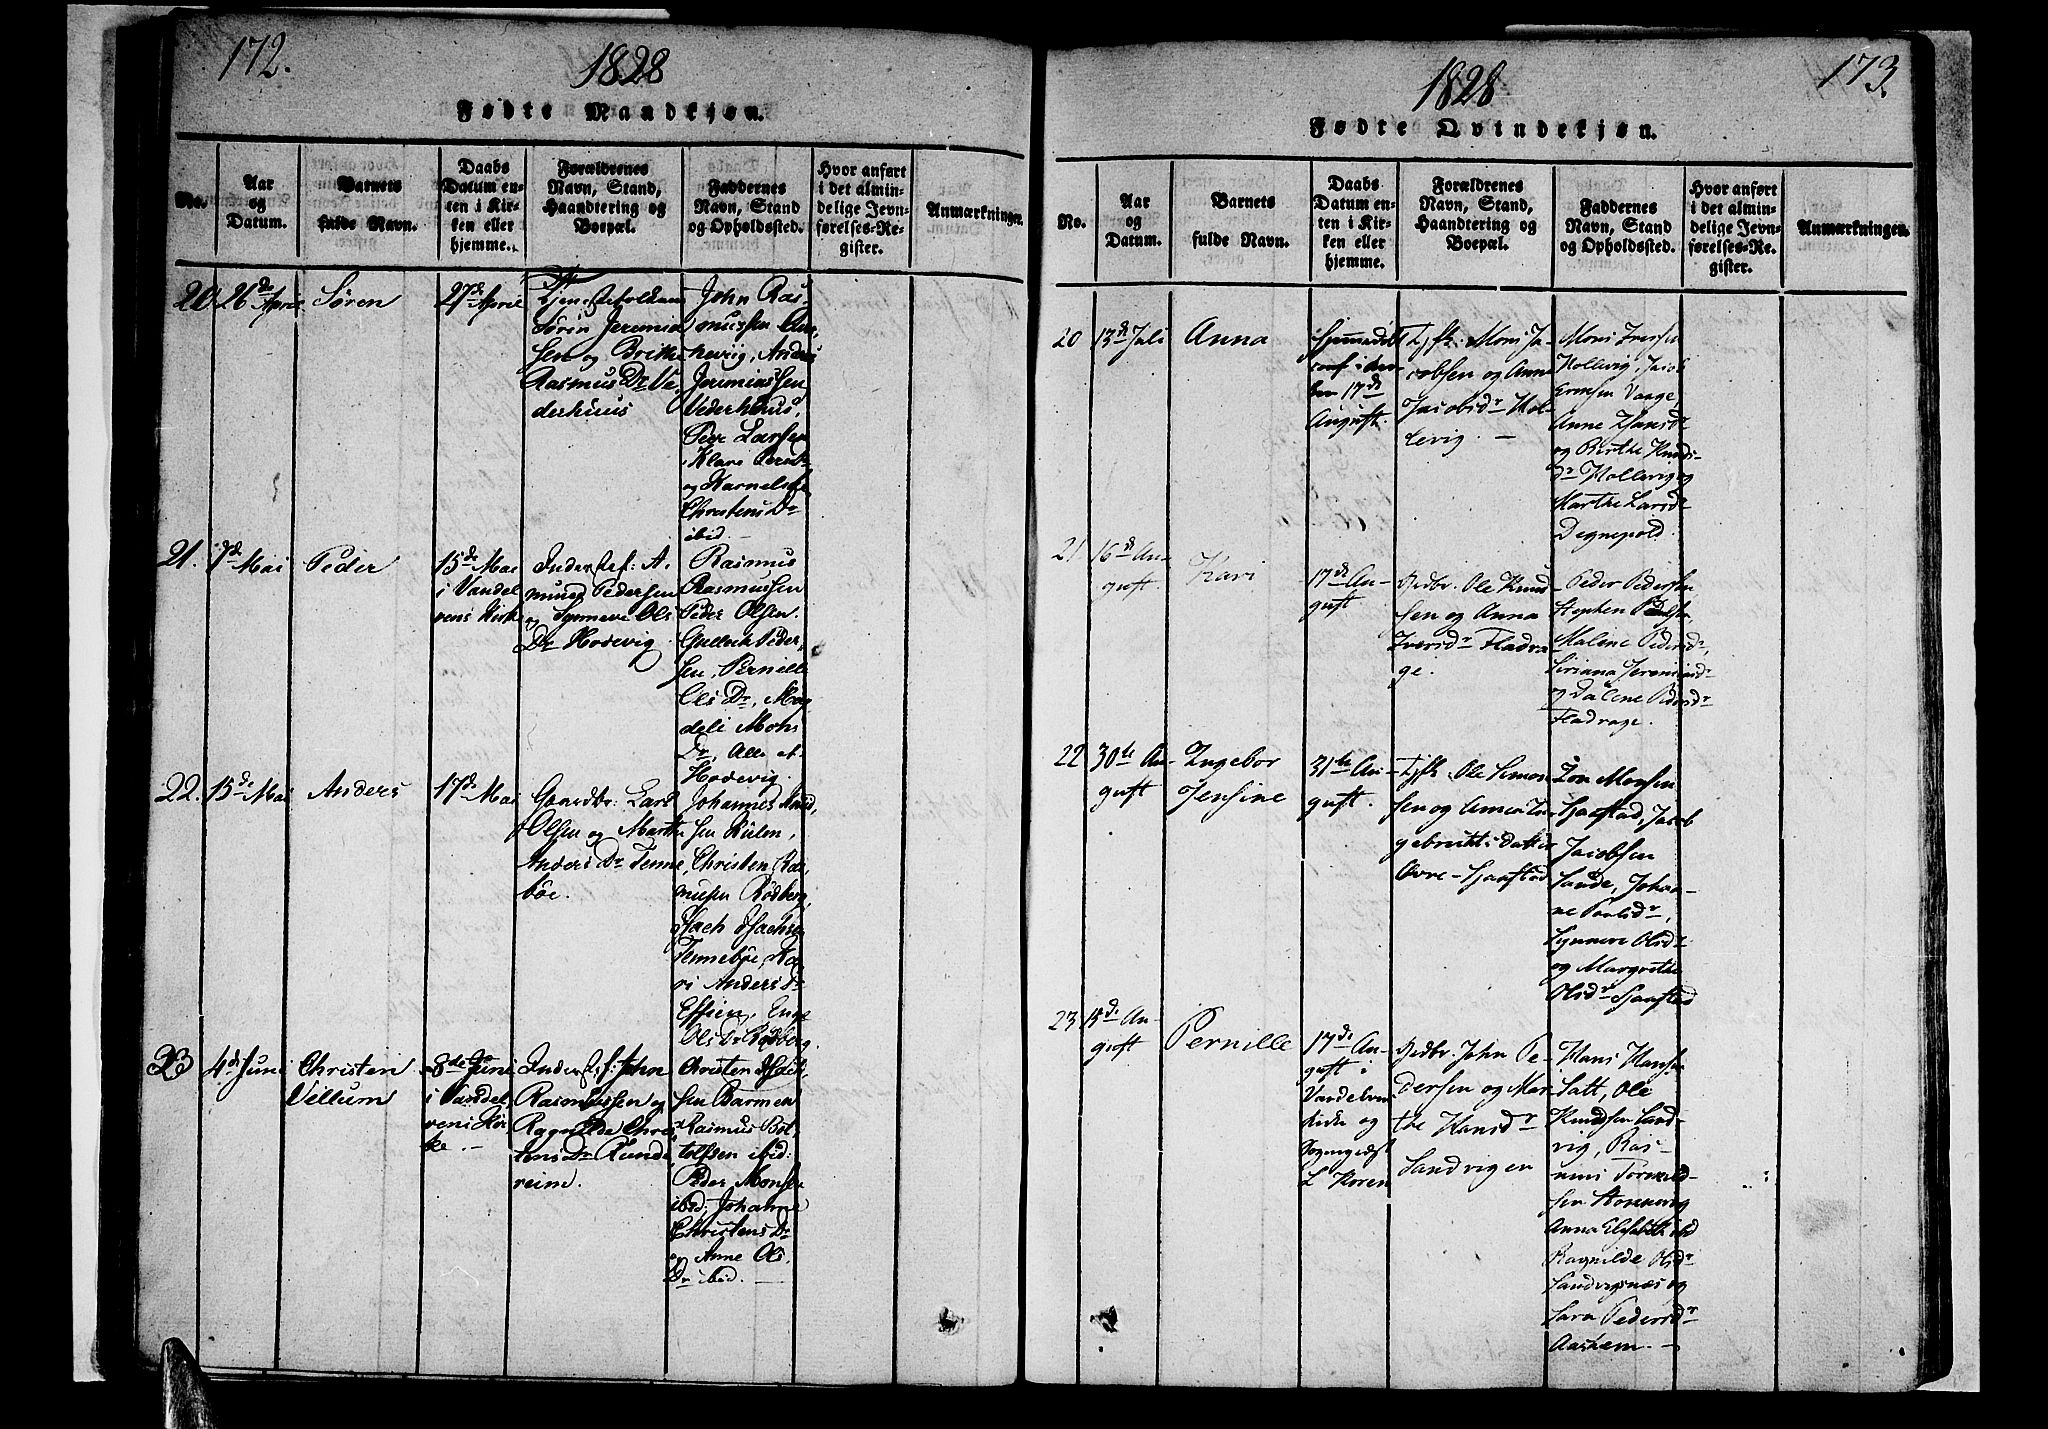 172.
1828
Fødte Mandkjøn.
No.
Aar
og
Datum.
Barnets
fulde Navn.
Daabs
Datum en-
ten i Kir-
ken eller
hjemme.
Forældrenes
Navn, Stand,
Haandtering og
Boepæl.
Faddernes
Navn, Stand
og Opholdssted.
Hvor anført
i det almin-
delige Jevn-
førelses-Re-
gister.
Anmærkninger.
20.
26de April
Søren
27de April
Tjenestefolkene
Sörin Jeremia
sen og Brithe
Rasmus Dr. Ve
derhuus
John Ras-
mussen
Anders
Jeremiassen
Vederhuus,
Peder Larsen
og
Christens Dr
ibid.
21.
7de Mai
Peder
15de Mai
i Vandel
vens Kirke
Inderstef: A-
mund Pedersen
og Synneve Ols
Dr Hodevig
Rasmus
Rasmussen
Peder Olsen.
Gullich Peder
sen, Pernille
Ols Dr, Mag
deli Mons
Dr, Alle af
Hodevig.
22.
15de Mai
Anders
17de Mai
Gaardbr. Lars
Olsen og Marthe
Anders Dr Tenne
böe.
Johannes Knud
sen
Christen Ras
musen Rödberg,
Isach Isachsen
Tenneböe, Ka
ri Anders Dr
Ols Dr Rødberg.
23
4de Juni
Christen
Villum
8de Juni
i Vandel
veni Kir
ke. -
Inderstef: John
Rasmussen og
Ragnilda Chris
tens Dr Runde
reim.
Christen Isach
sen Barmen
Rasmus Bot
tolfsen ibid:
Peder Monsen
ibid: Johanne
Christens Dr
og Anne Ols
Dr ibid.
173.
1828
Fødte Qvindekjøn.
No.
Aar
og
Datum.
Barnets
fulde Navn.
Daabs
Datum en-
ten i Kir-
ken eller
hjemme.
Forældrenes
Navn, Stand,
Haandtering og
Boepæl.
Faddernes
Navn, Stand
og Opholdssted.
Hvor anført
i det almin-
delige Jevn-
førelses-Re-
gister.
Anmærkninger.
20
13de Juli
Anna
Hjemmedøbt
17de
August.
Tjfk: Mons Ja-
cobsen og Anne
Jacobsdr Hol-
levig. -
Mons Iversen
Hollevig, Jacob
Vaage,
Anne Hansdr
og Birthe Knuds-
dr Hollevig og
Marthe Larsdr
Degnepold.
21
16de Au-
gust.
Kari
17de Au-
gust
Gedbr. Ole Knud
sen og Anna
Iversdr Fladra
ge.
Peder Pedersen
Stephen
Malene Pedersdr,
Siriana Jeremiasdr
og Dalene Pedersdr
Fladrage.
22
30te Au-
gust
Ingebor
Jensine
31te Au-
gust.
Tjfk: Ole Simon
sen og
gebrecktsdatter
Øvre-Sjaastad
Jon Monsen
Sjaastad, Jacob
Jacobsen
Sande, Johan-
ne Poulsdr,
Synneve Olsdr
og Margrethe
Olsdr Sjaastad
23
15de Au-
gust
Pernille
17de Au-
gust i
kirke og
Koren
Gedbr. John Pe-
dersen og Mar
the Hansdr
Sandvigen
Hans Hansen
Satt, Ole
Knudsen Sand-
vig, Ras-
mus Tormod-
sen
Anna Elisabeth ibd
Ragnilde Olsdr
Sandvignæs og
Sara Pedersdr
Aasheim. -